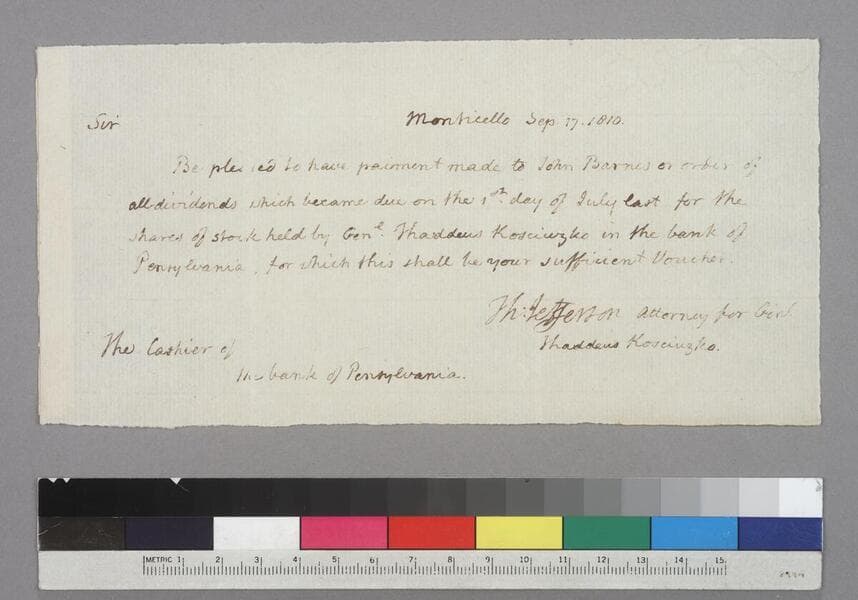 Sir
Monticello Sep. 17. 1810.
Be pleased to have paiment made to John Barnes or order of
all dividends which became due on the 1st. day of July last for the
shares of stock held by Genl. Thaddeus Kosciuzko in the bank of
Pennsylvania, for which this shall be your sufficient Voucher.
Th: Jefferson attorney for Genl.
Thaddeus Kosciuzko.
The Cashier of
the bank of Pensylvania.
METRIC 1 2 3 4 5 6 7 8 9 10 11 12 13 14 15